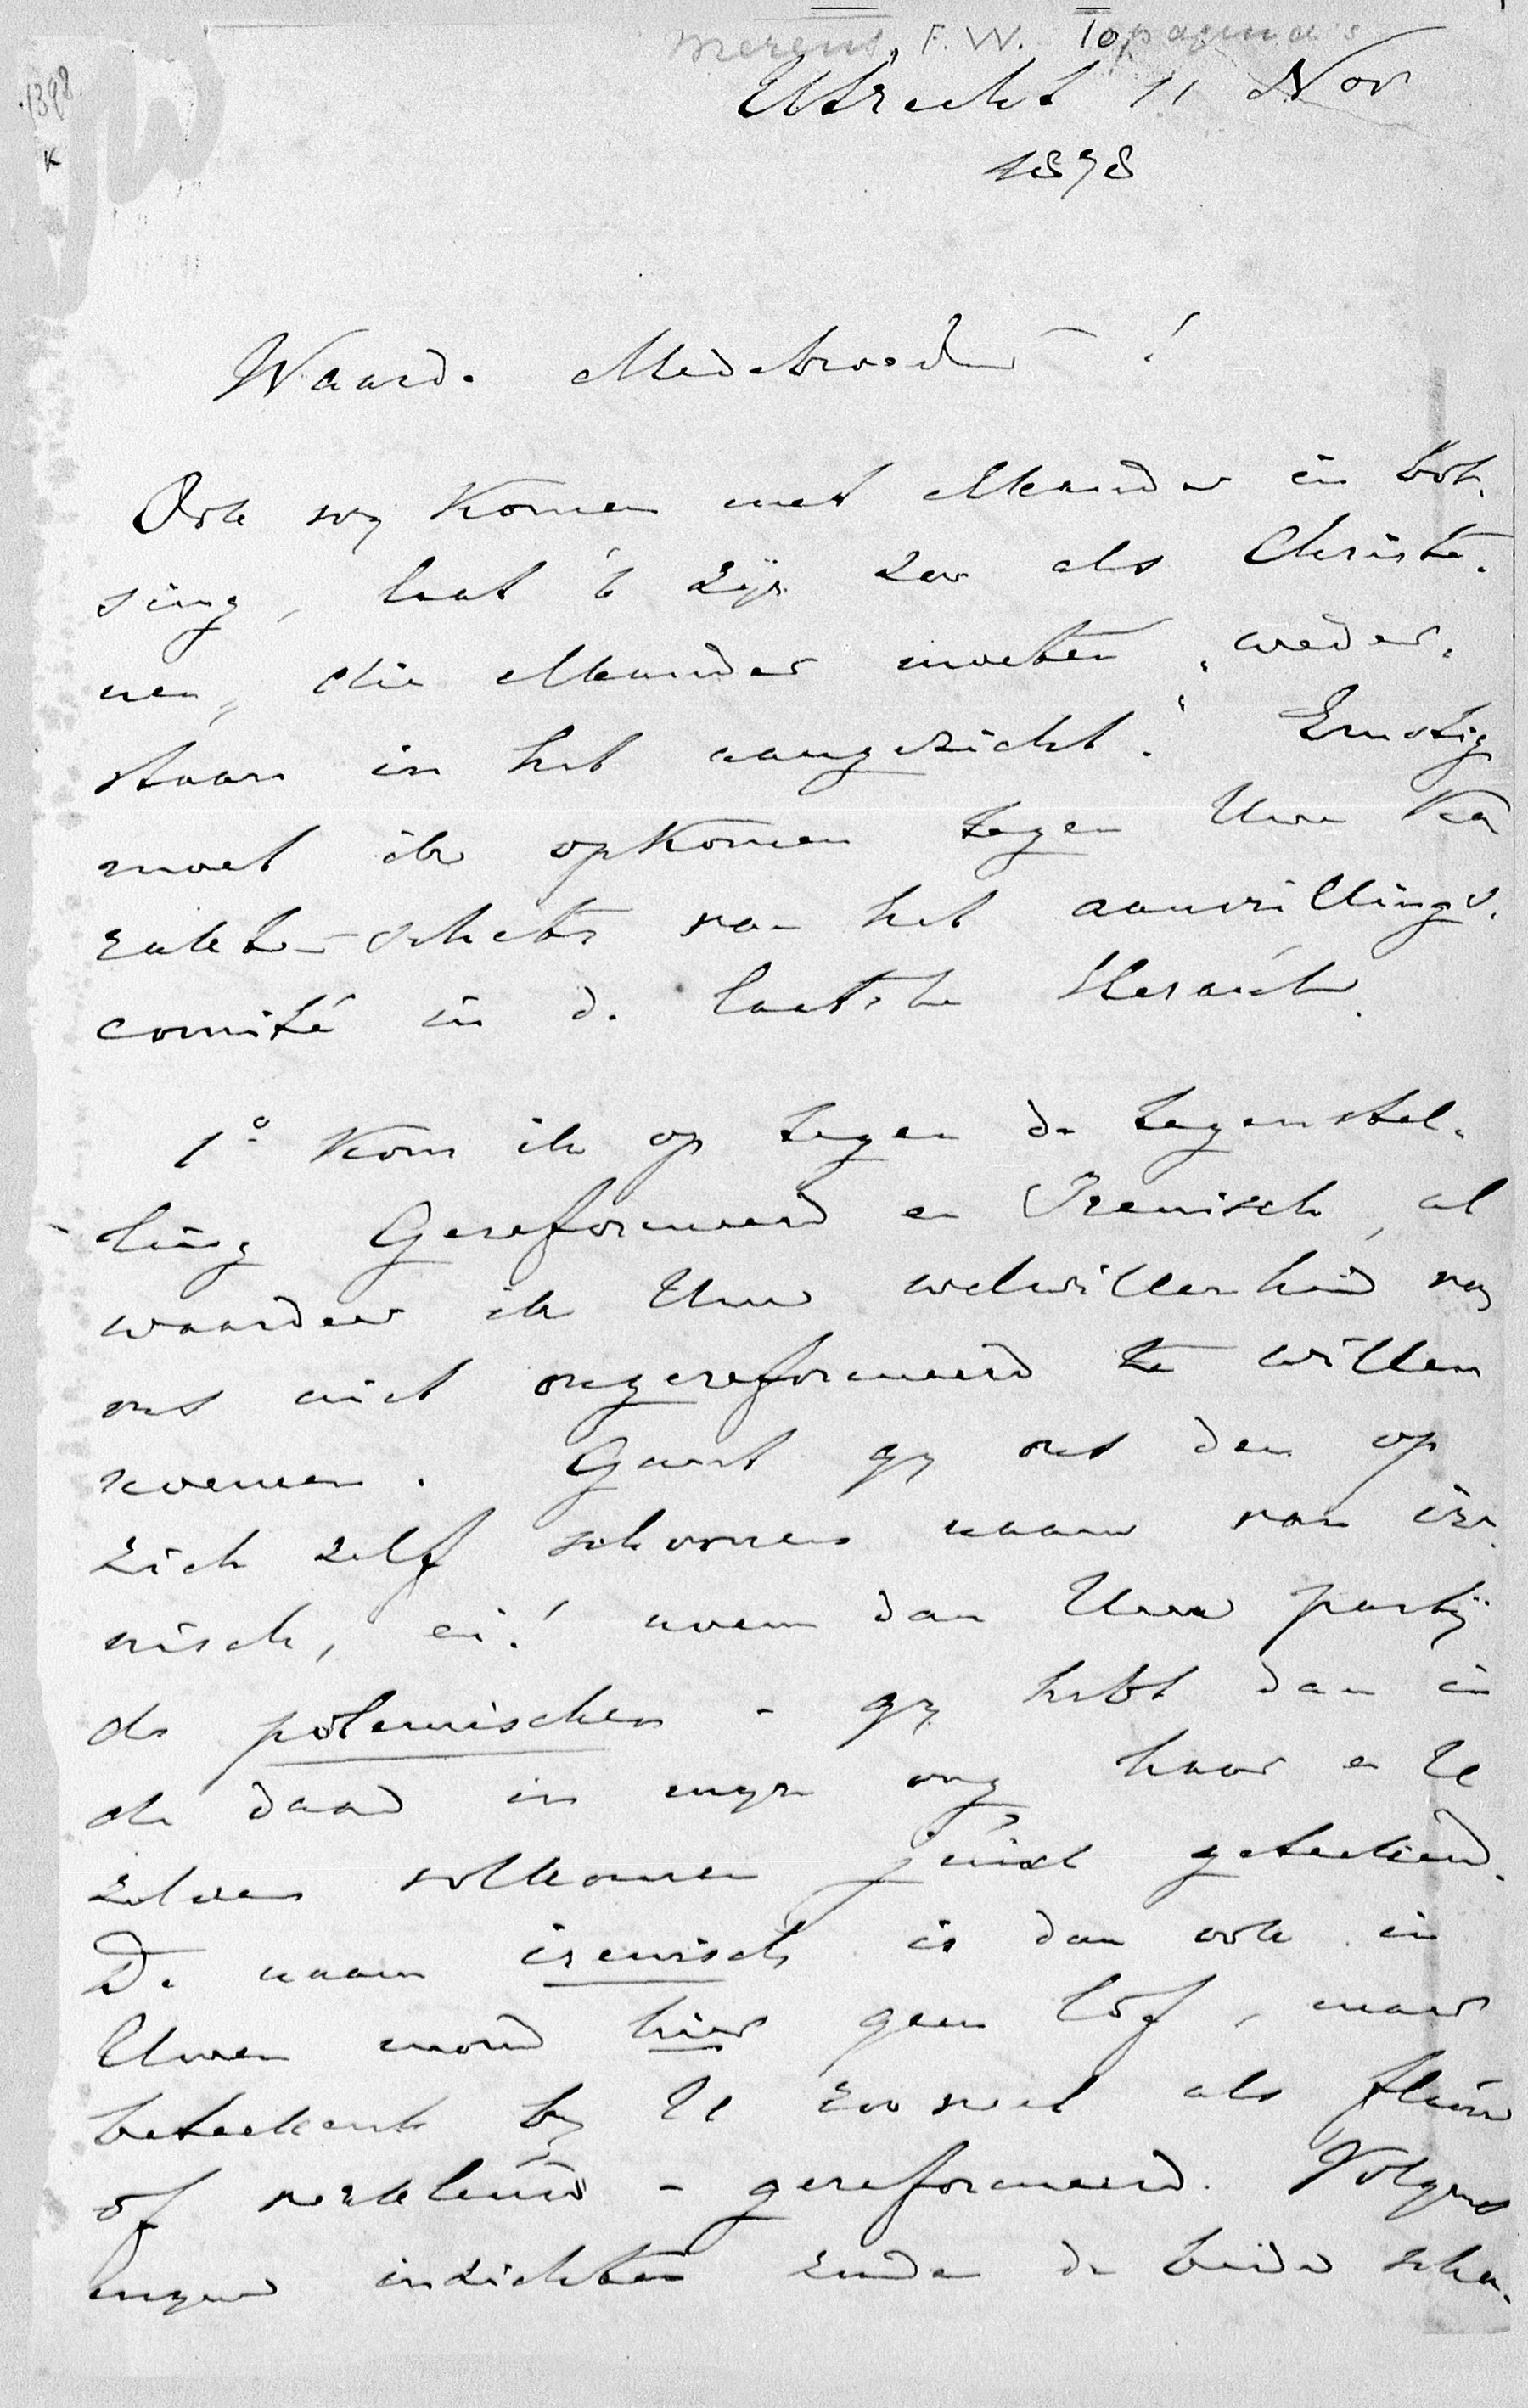 Merens, F. W.
1398.
K
Utrecht 11 Nov
1878
Waarde Medebroeder!
Ook wij komen met elkander in bot-
sing, laat 't zijn als Christe-
nen, die elkander moeten "weder-
staan in het aangezicht." Ernstig
moet ik opkomen tegen Uwe ka
rakter-schets van het aanvullings-
comité in de laatste Heraut.
1o kom ik op tegen de tegenstel-
ling Gereformeerd en Irenisch, al
waardeer ik Uwe welwillendheid wij
ons niet ongereformeerd te willen
noemen. Gunt gij ons den op
zich zelf schoonen naam van ire-
nisch, ei! noem dan Uwe partij
de polemischen - gij hebt dan in
de daad in mijn oog haar en U
zelven volkomen juist geteekend.
De naam irenisch is dan ook in
Uwen mond hier geen lof, maar
beteekent bij U zooveel als flauw
of verkleurd-gereformeerd. Volgens
mijne inzichten de beide scha-